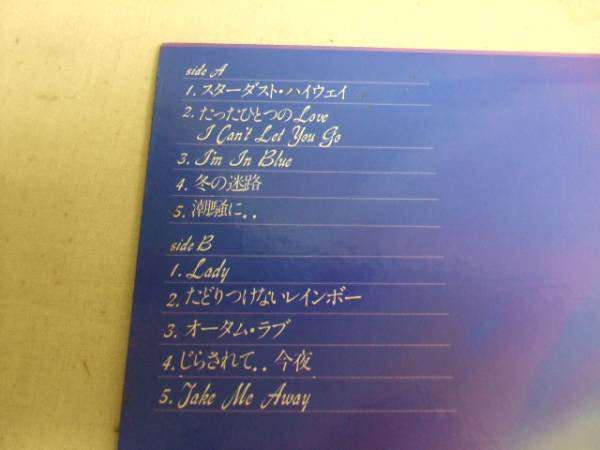 side A
1. スターダスト・ハイウェイ
2. たったひとつのLove
I Can't Let You Go
3. I'm In Blue
4. 冬の迷路
5. 潮騒に..
side B
1. Lady
2. たどりつけないレインボー
3. オータム・ラブ
4. じらされて.. 今夜
5. Take Me Away